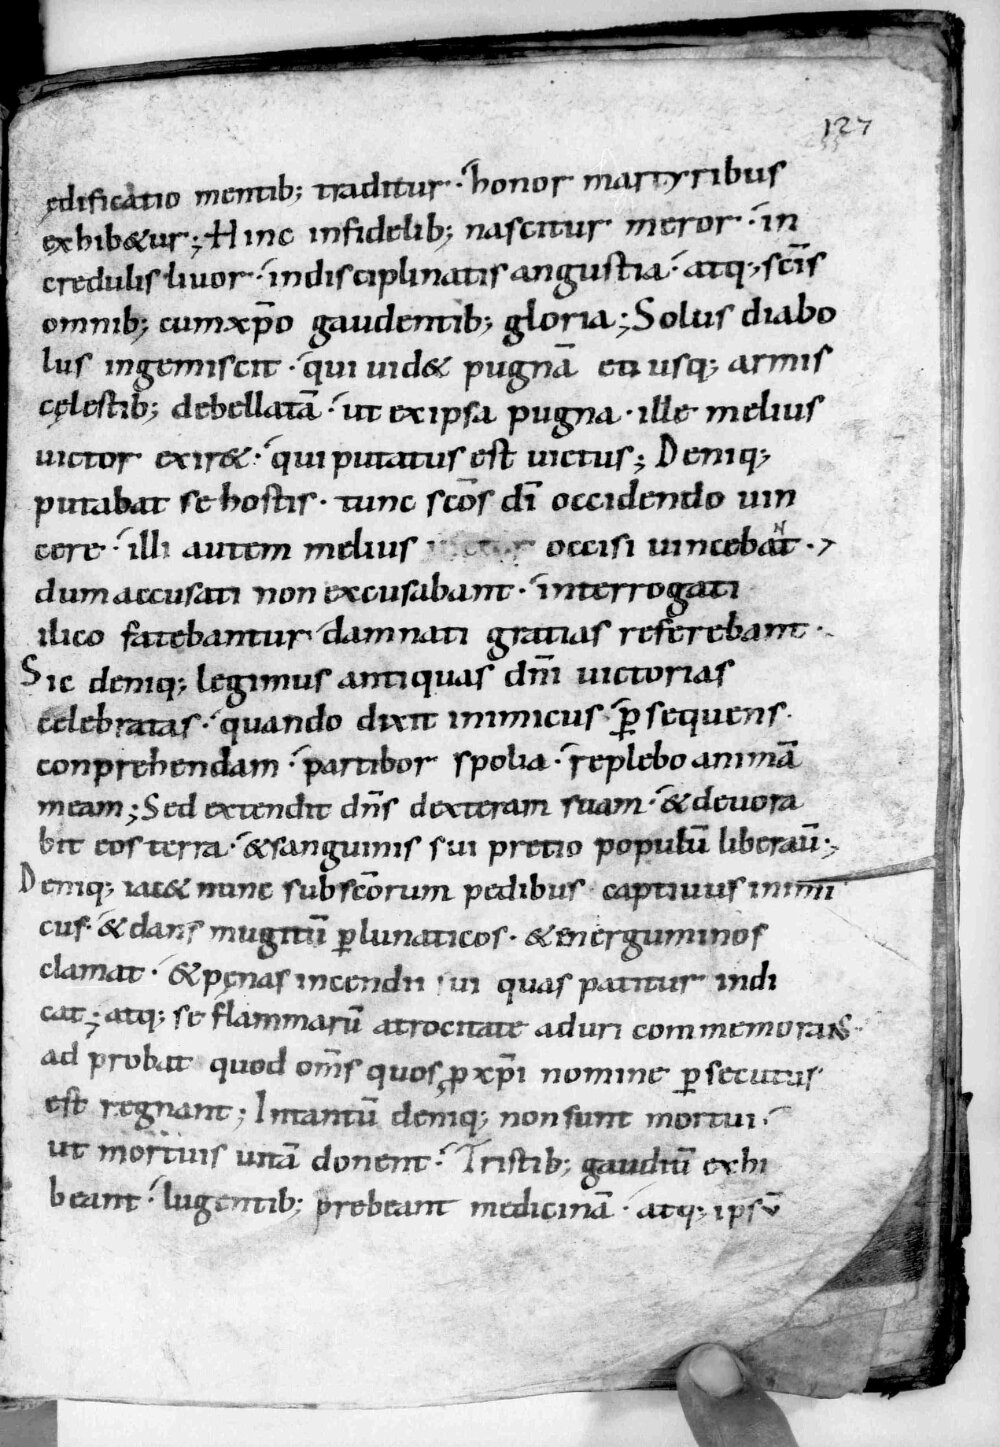 127
ędificatio mentib; traditur · honor martyribus
exhib&ur; Hinc infidelib; nascitur meror · in
credulis liuor · indisciplinatis angustia · atq; sc̄is
omnib; cum xp̄o gaudentib; gloria; Solus diabo
lus ingemiscit · qui uid& pugnā eti usq; armis
cęlestib; debellatā · ut ex ipsa pugna · ille melius
uictor exir& · qui putatus est uictus; Deniq;
putabat se hostis · tunc sc̄os dī occidendo uin
cere · illi autem melius occisi uincebant · 7
dum accusati non excusabant · interrogati
ilico fatebantur damnati gratias referebant ·
Sic deniq; legimus antiquas dn̄i uictorias
celebratas · quando dixit inimicus p̲sequens ·
conprehendam · partibor spolia · replebo animā
meam; Sed extendit dn̄s dexteram suam · & deuora
bit eos terra · & sanguinis sui pretio populū liberaū ·;
Deniq; iac& nunc sub sc̄orum pedibus captiuus inimi
cus · & dans mugitū p̲ lunaticos · & energuminos
clamat · & pęnas incendii sui quas patitur indi
cat; atq; se flammarū atrocitate aduri commemorans ·
ad probat quod om̄s quos ꝓ xp̄i nomine p̲secutus
est regnant; Intantū deniq; non sunt mortui ·
ut mortuis uitā donent · Tristib; gaudiū exhi
beant · lugentib; prebeant medicinā · atq; ipsū